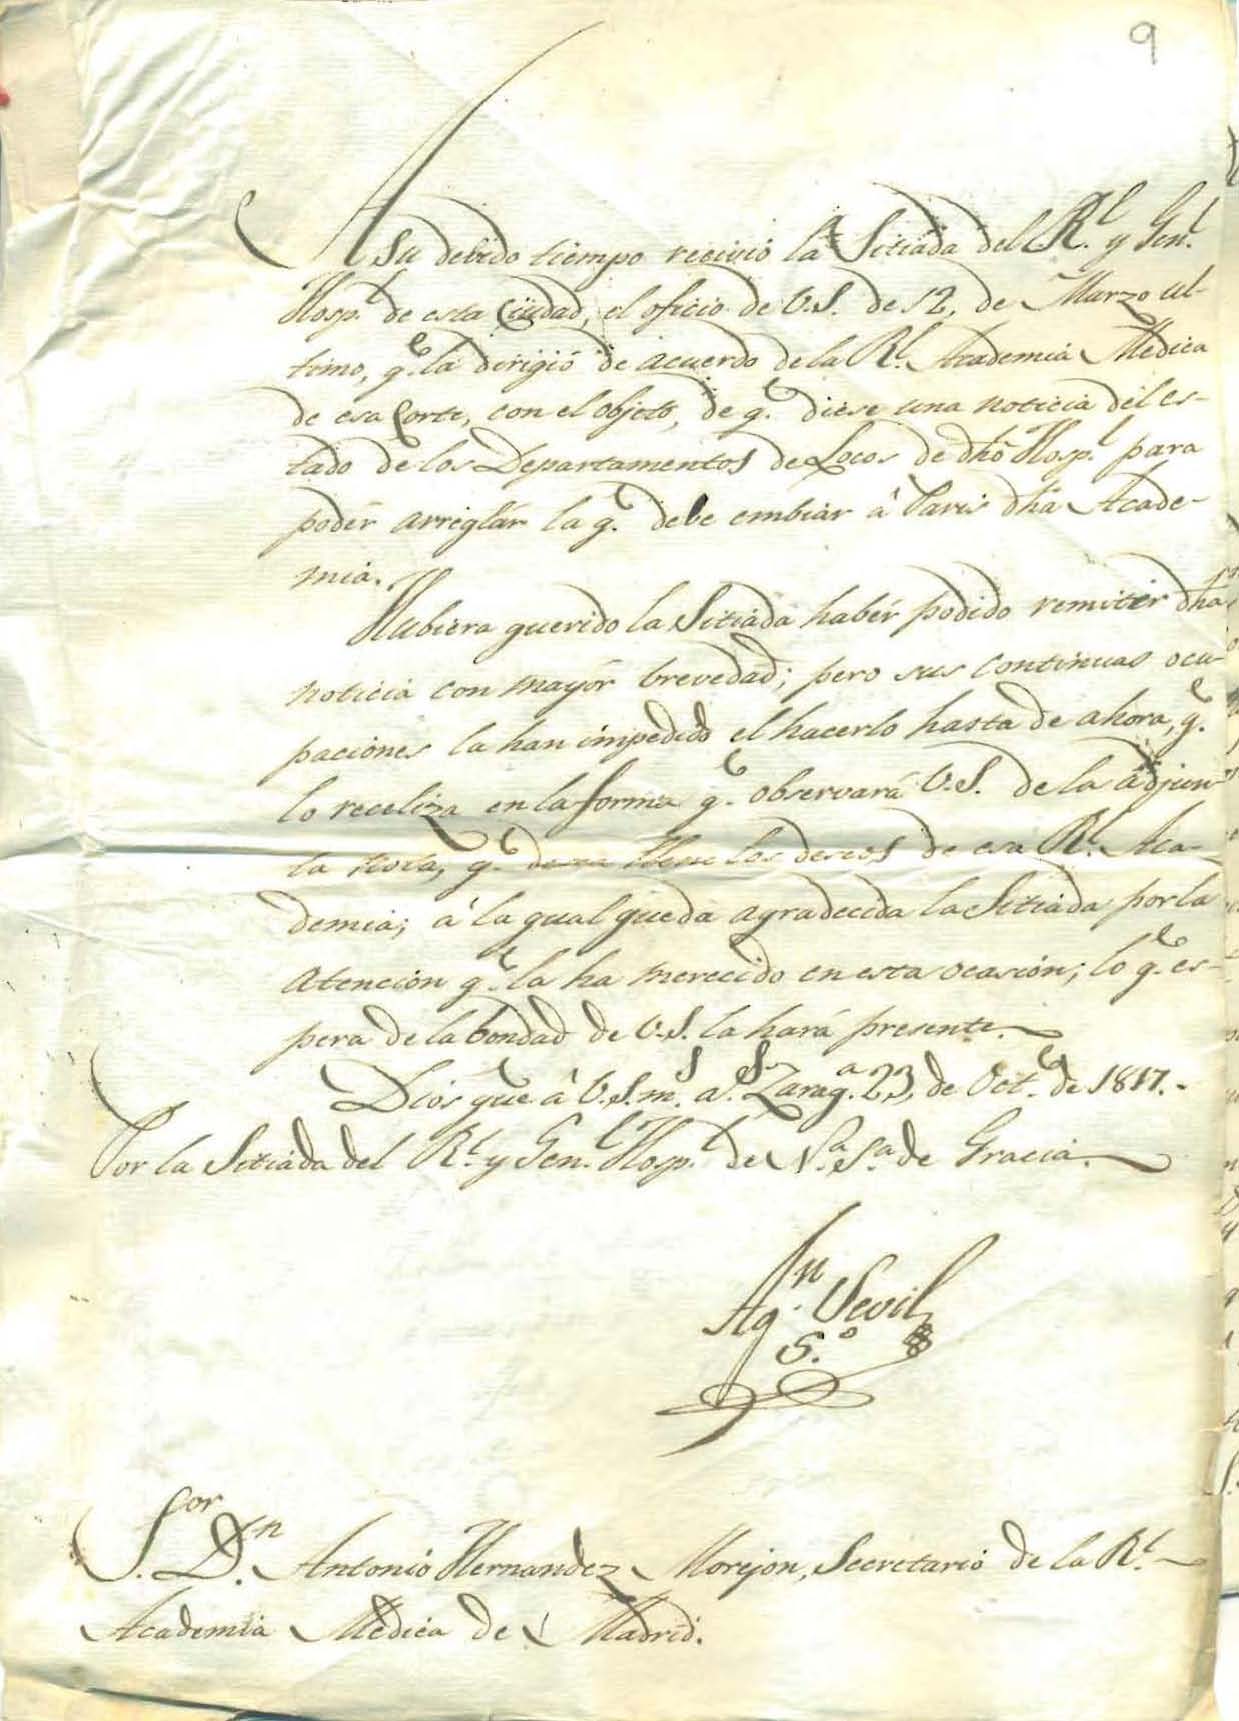 9
A su debido tiempo recivió la Sitiada del Rl. y Genl.
Hospl. de esta Ciudad, el oficio de V.S. de 12, de Marzo ul-
timo, qe. la dirigió de acuerdo de la Rl. Academia Medica
de esa Corte, con el objeto, de qe. diese una noticia del es-
tado de los Departamentos de Locos de dho Hospl. para
poder arreglár la qe. debe embiar á Paris dha Acade-
mia.
Hubiera querido la Sitiada habér podido remitir dha
noticia con mayór brevedad; pero sus continuas ocu-
paciones la han impedido el hacerlo hasta de ahora, qe.
lo receliza en la forma qe. observará V.S. de la adjun-
ta nota, qe. llene los deseos de esa Rl. Aca-
demia; á la qual queda agradecida la Sitiada por la
atención qe. la ha merecido en esta ocasión; lo qe. es-
pera de la bondad de V.S. la hará presente.
Dios gue á V.S. ms. as. Zaraga. 23, de Octe. de 1817.
Por la Sitiada del Rl. y Genl. Hospl. de Na. Sa. de Gracia.
Agn. Sevil
So.
Sor. Dn. Antonio Hernandez Morejon, Secretario de la Rl.
Academia Medica de Madrid.